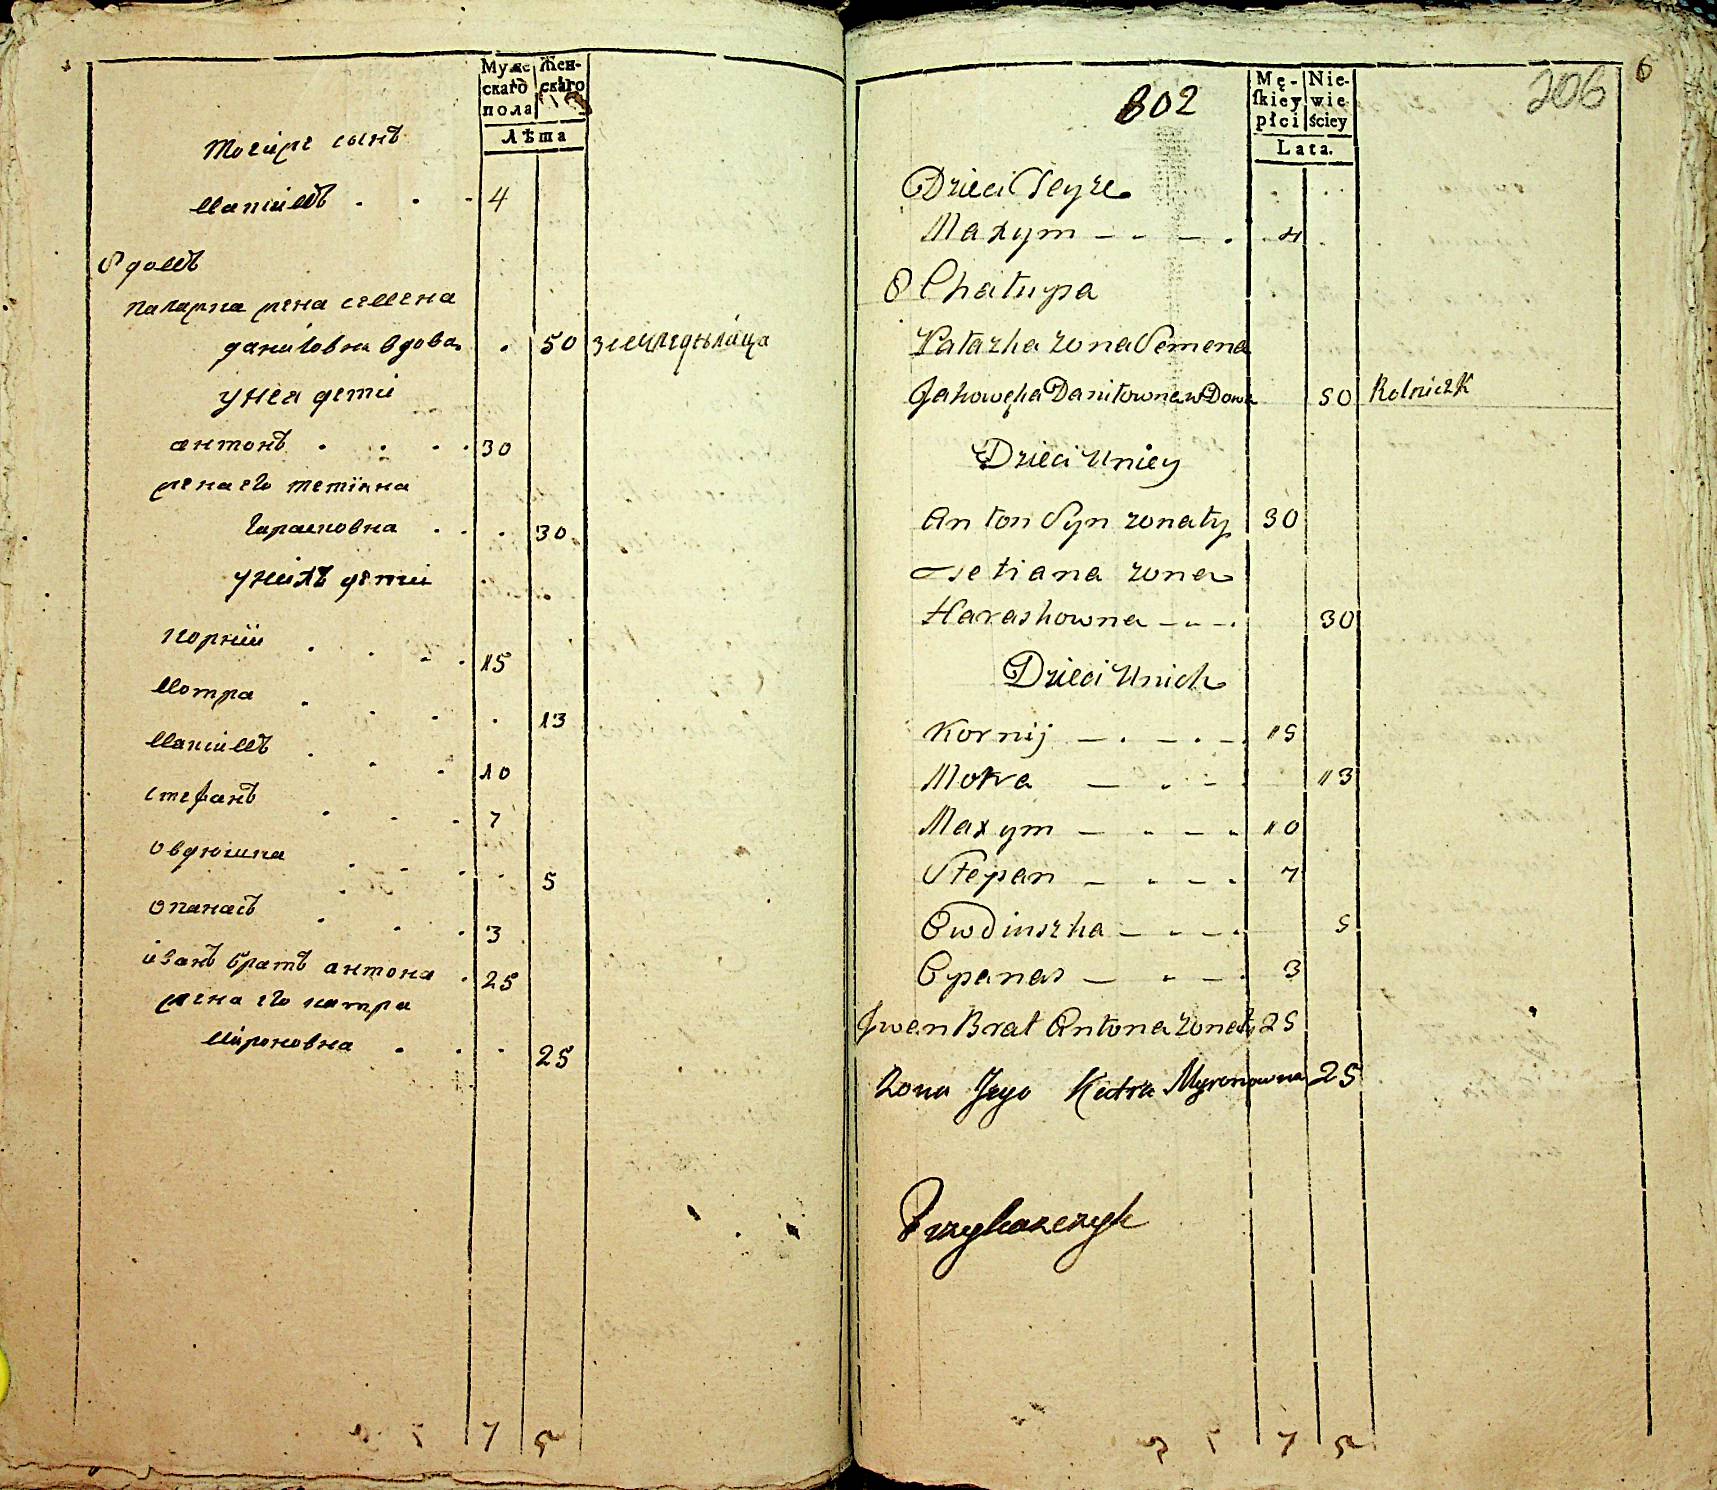 Муже
скаго
пола
Жен-
скаго
Лѣта
тоеиже сынъ
Максимъ . . . 4
8 домъ
Палажка жена семена
даниловна вдова . 50 земледѣлица
у нея дети
антонъ . . . 30
жена его тетіяна
Гарасковна . . . 30
у нихъ дети
Корнiи . . . . 15
Мотра . . . . 13
Максимъ . . . 10
стефанъ . . . 7
овдюшка . . . . 5
опанасъ . . . 3
иванъ братъ антона . 25
жена его катра
Мироновна . . . 25
7 5
802
206
6
Mę-
skiey
płci
Nie-
wie
ściey
Lata.
Dzieci Teyże
Maxym 4
8 Chałupa
Pałazka zona Semena
Jakowęka Daniłowna wDowa 50 Rolniczk
Dzieci Uniey
Anton Syn zonaty 30
Tetiana zona
Haraskowna 30
Dzieci Unich
Kornij 15
Motra 13
Maxym 10
Stepan 7
Owdiuszka 5
Opanas 3
Jwan Brat Antona zonaty 25
Zona Jego Katra Myronowna 25
Przykaszczyk
7 5